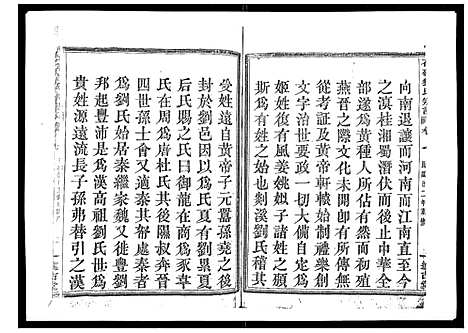 向南退讓而河南而江南直至今
之滇桂湘蜀潛伏而後止中央一
部遂爲黃種人所佔有然成周時
燕晉之際文化未開即有所傳無
從考証及黃帝軒轅始制禮樂創
文字治世一切大備自定以姬爲
姬姓復有風姜姚姒子諸姓之領
斯爲有姓之始剡溪劉氏稽其
受姓遠自黃帝子元囂孫堯之後
有於劉邑因以爲氏夏有劉累夏
后氏賜之曰氏曰御龍商爲豕韋
氏在周爲唐杜氏其後隰叔奔晉
四世孫士會又適秦其帑處秦者
爲劉氏始居秦繼家魏又徙豐劉
邦起豐沛是爲漢高祖劉氏世爲
貴姓源遠流長子孫弗替引之漢